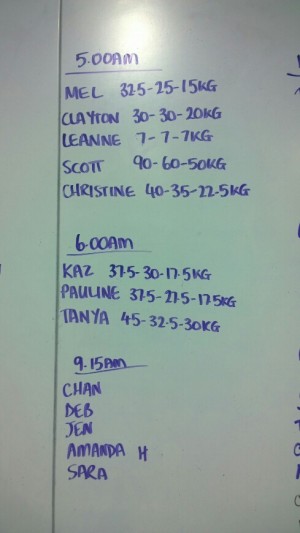 5.00AM
MEL 32.5-25-15KG
CLAYTON 30-30-20KG
LEANNE 7-7-7KG
SCOTT 90-60-50KG
CHRISTINE 40-35-22.5KG
6.00AM
KAZ 37.5-30-17.5KG
PAULINE 37.5-27.5-17.5KG
TANYA 45-32.5-30KG
9.15AM
CHAN
DEB
JEN
AMANDA H
SARA